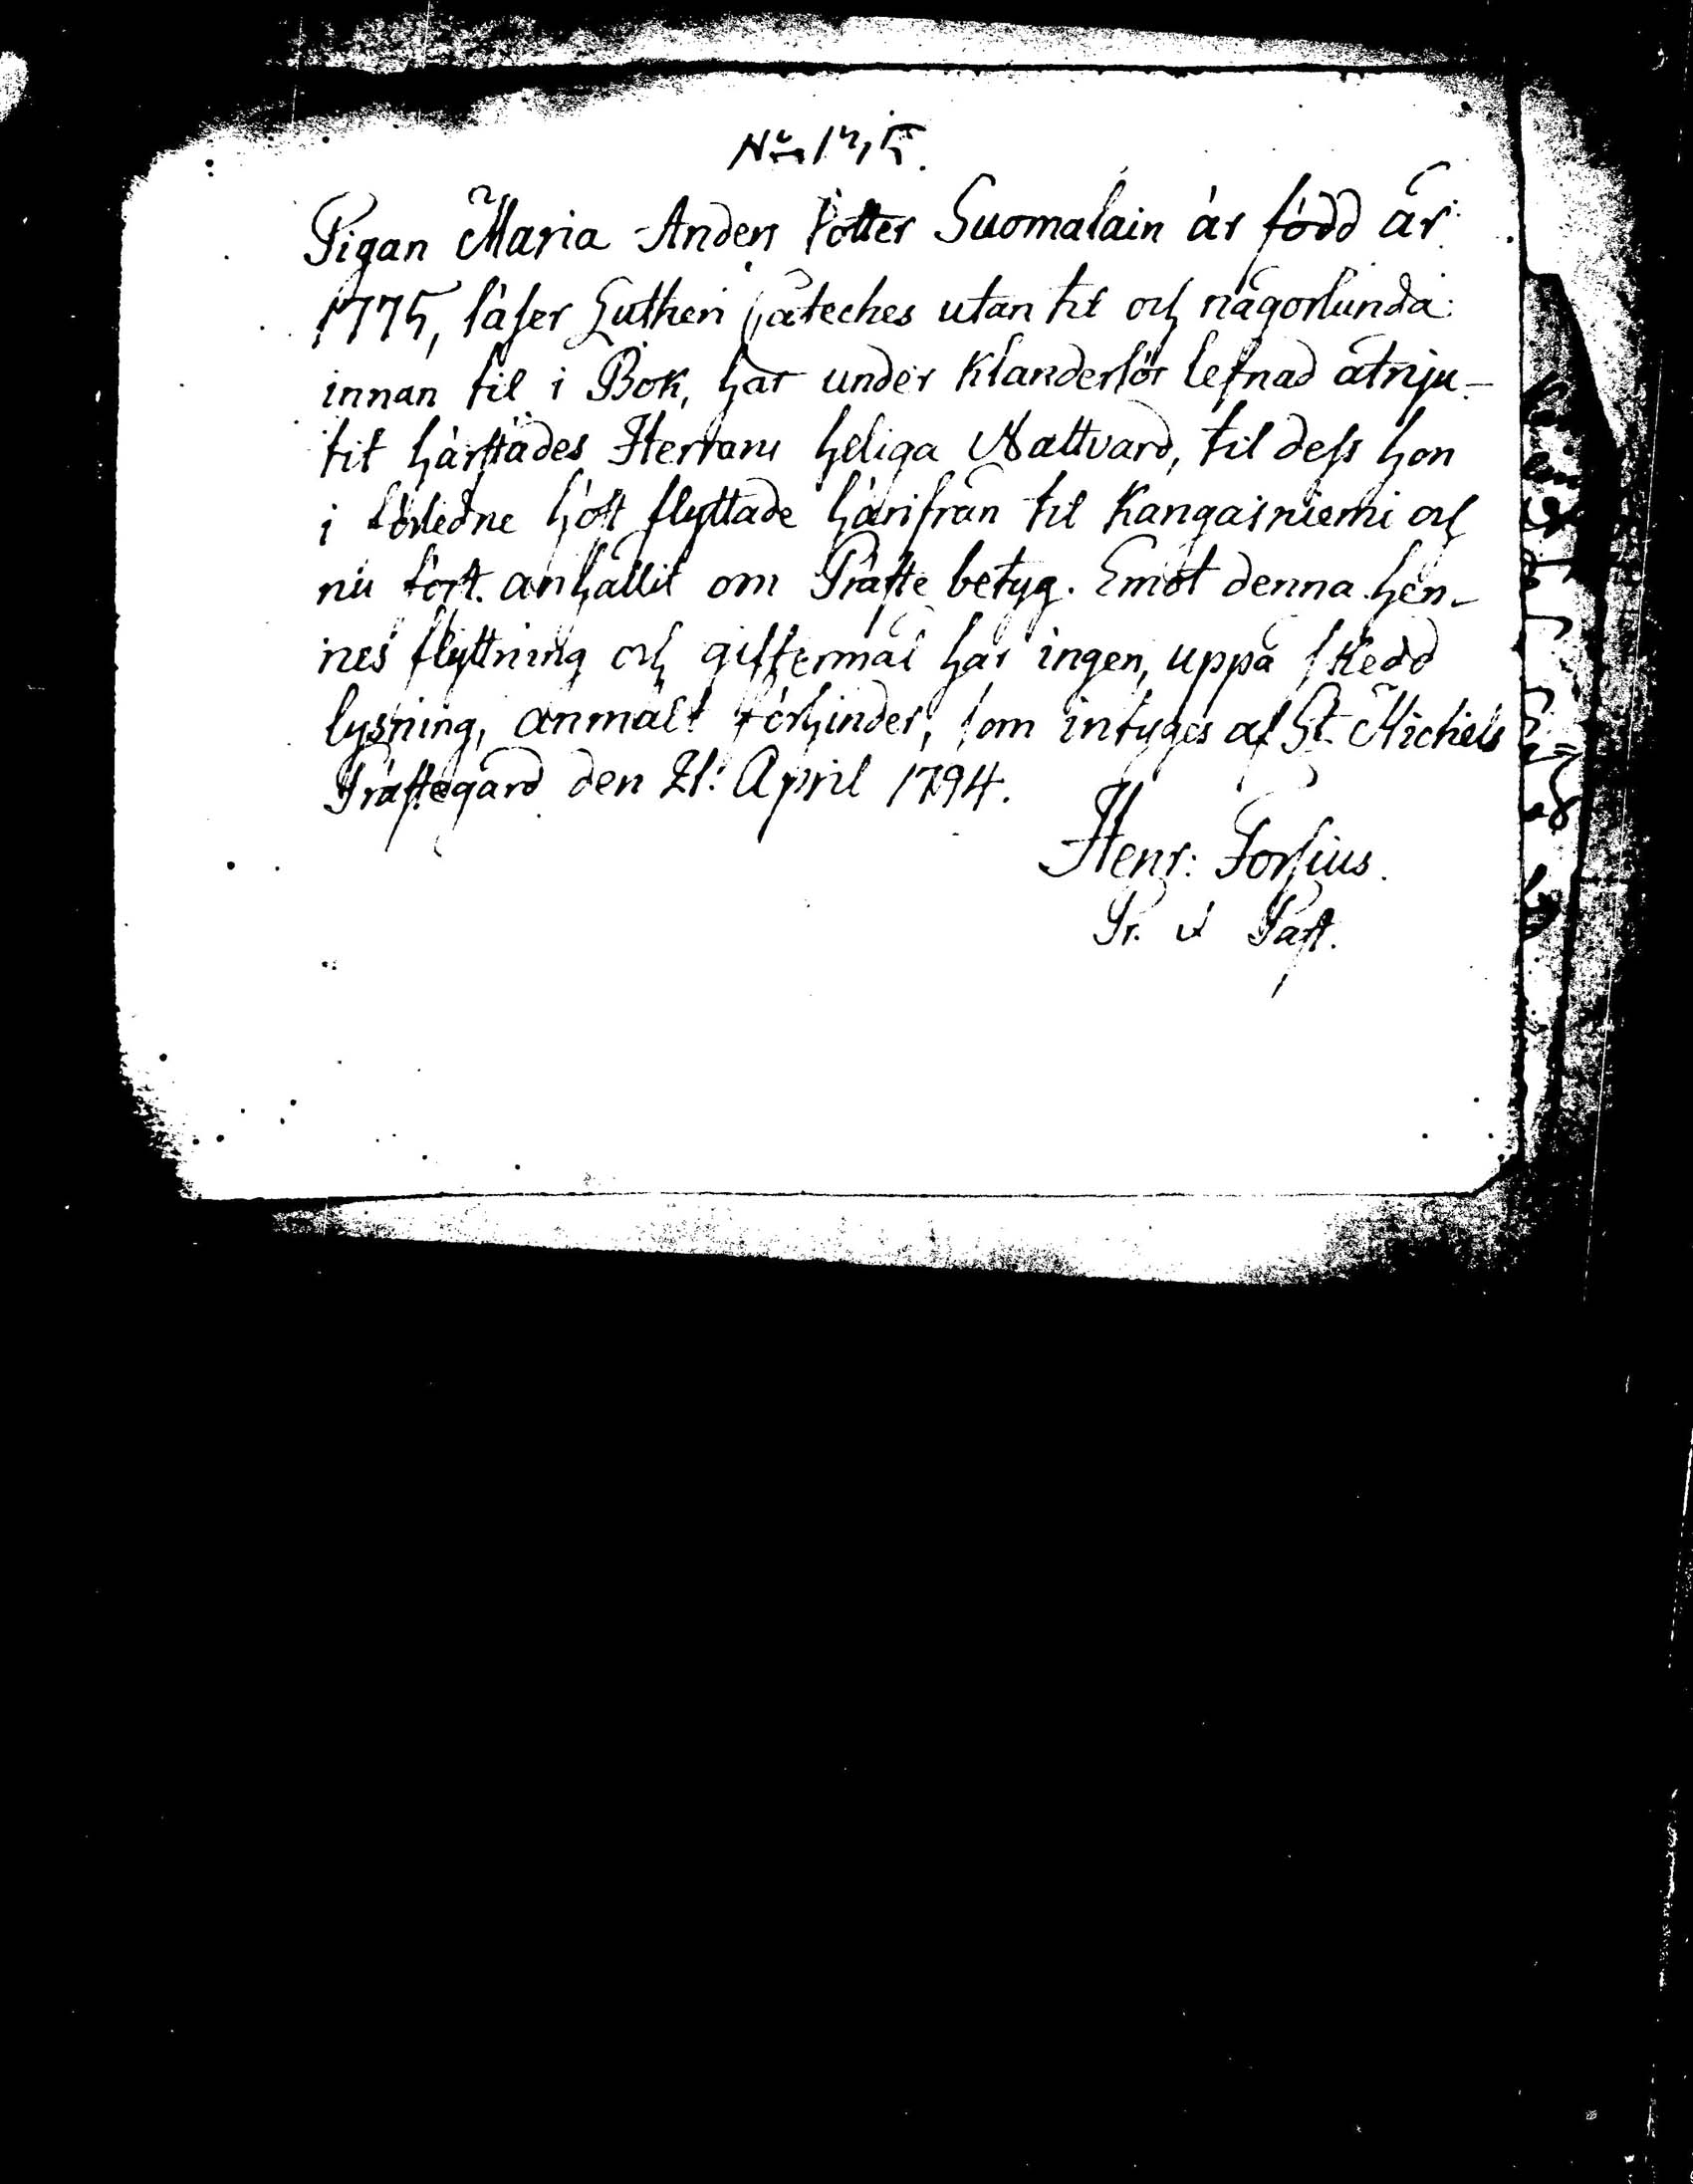 Pigan Maria Anders dotter Suomalain är född år
1775, läser Lutheri Cateches utan til och någorlunda
innan til i Bok, har under klanderlös lefnad åtnju-
tit härstädes Herrans heliga Nattvard, til dess hon
i förledne höst flyttade härifrån til Kangasniemi och
nu först anhållit om Präste betyg. Emot denna hen-
nes flyttning och giftermål har ingen, uppå skedd
lysning, anmält förhinder, som intyges af St. Michels
Prästegård den 21. April 1794.
Henr: Forsius.
Pr. & Past.